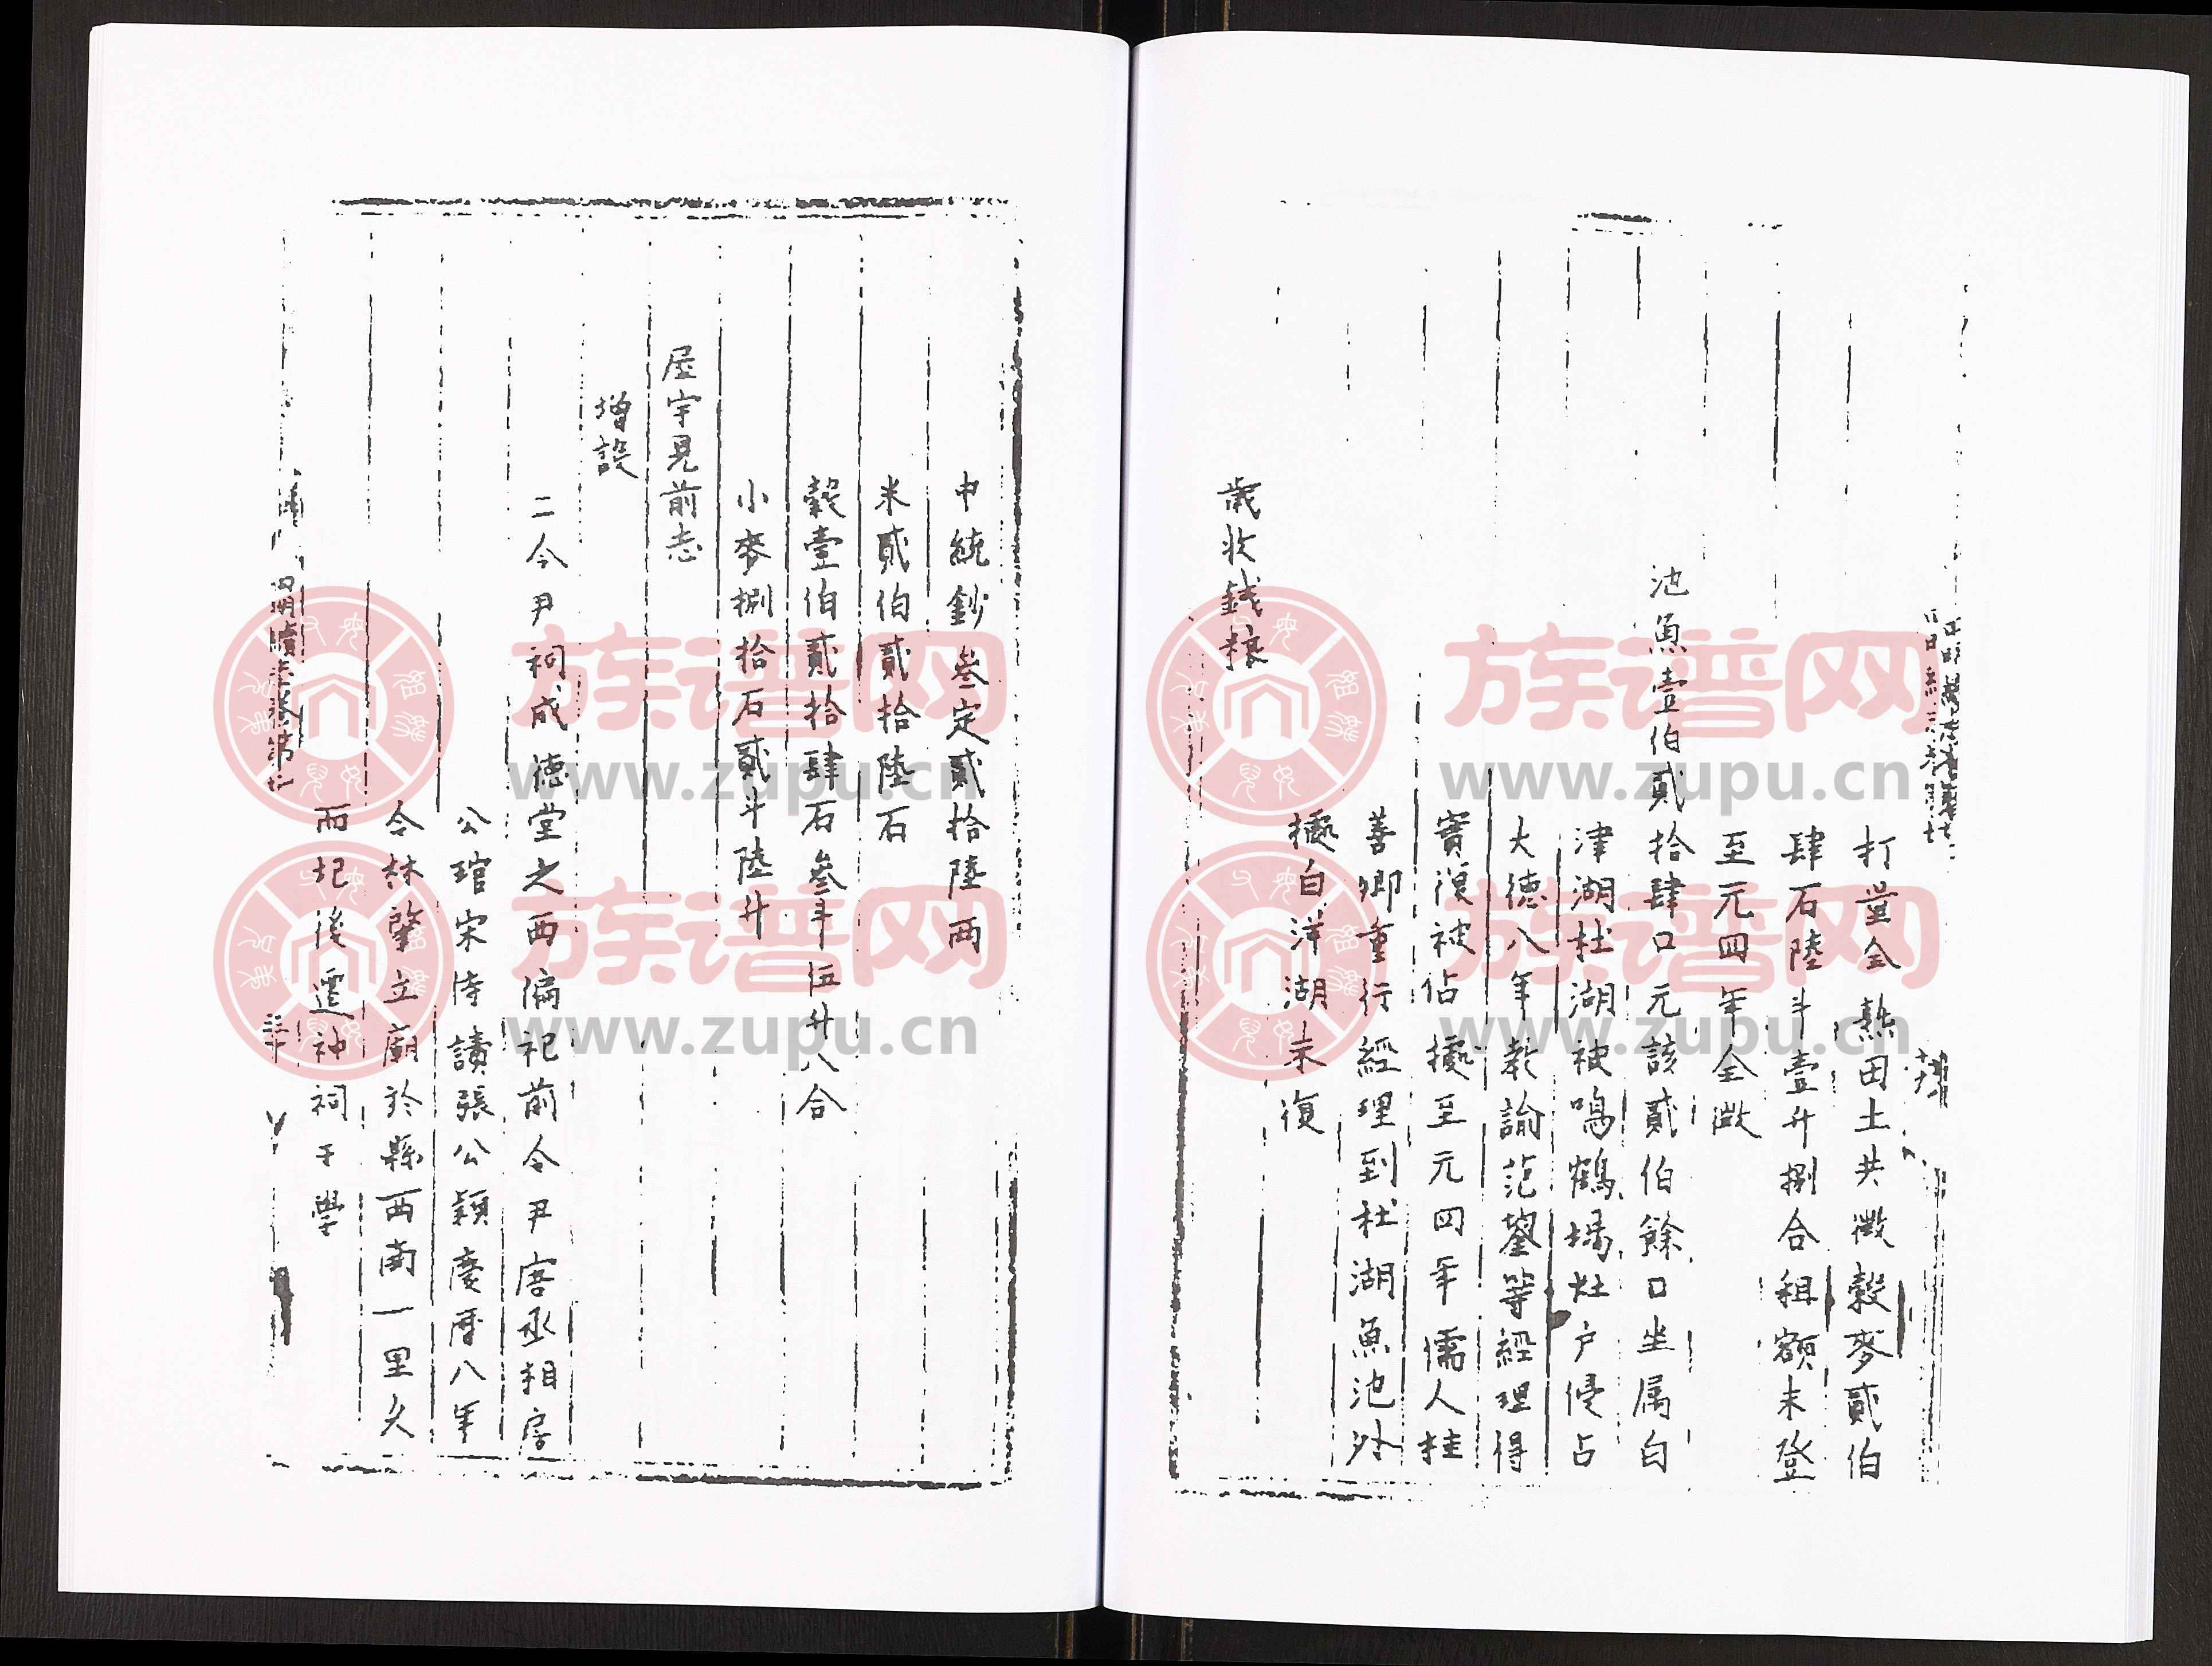 打量全熟田土共徵穀麥貳伯
肆石陸斗壹升捌合租額未登
至元四年全徵
池魚壹伯貳拾肆口元該貳伯餘口坐属白
津湖杜湖被鳴鶴塲灶户侵占
大德八年教諭范鑾等經理得
實復被佔擾至元四年儒人桂
善卿重行經理到杜湖魚池外
擾白洋湖未復
歲收錢糧
中統鈔叁定貳拾陸兩
米貳伯貳拾陸石
穀壹伯貳拾肆石叁斗伍升八合
小麥捌拾石貳斗陸升
屋宇見前志
增設
二令尹祠成德堂之西偏祀前令尹唐丞相房
公琯宋侍讀張公穎慶曆八年
令林肇立廟於縣西南一里久
而圮後遷神祠于學
續志卷第七
族谱网
www.zupu.cn
族谱网
www.zupu.cn
族谱网
www.zupu.cn
族谱网
www.zupu.cn